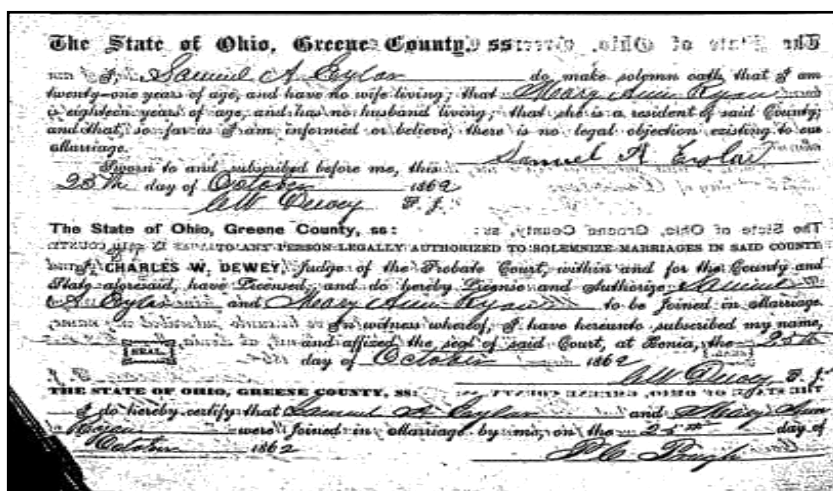 The State of Ohio, Greene County, ss:
I, Samuel A. Eylar do make solemn oath, that I am
twenty-one years of age, and have no wife living; that Mary Ann Ryan
is eighteen years of age, and has no husband living; that she is a resident of said County;
and that, so far as I am informed or believe, there is no legal objection existing to our
Marriage.
Samuel A Eylar
Sworn to and subscribed before me, this
25th day of October 1862
CW Dewey P. J.
The State of Ohio, Greene County, ss:
TO ANY PERSON LEGALLY AUTHORIZED TO SOLEMNIZE MARRIAGES IN SAID COUNTY
I, CHARLES W. DEWEY, Judge of the Probate Court, within and for the County and
State aforesaid, have Licensed, and do hereby License and Authorize Samuel
A Eylar and Mary Ann Ryan to be Joined in Marriage.
In witness whereof, I have hereunto subscribed my name,
SEAL. and affixed the seal of said Court, at Xenia, the 25th
day of October 1862
CW Dewey P. J.
THE STATE OF OHIO, GREENE COUNTY, SS:
I do hereby certify that Samuel A. Eylar and Mary Ann
Ryan were Joined in Marriage by me, on the 25th day of
October 1862